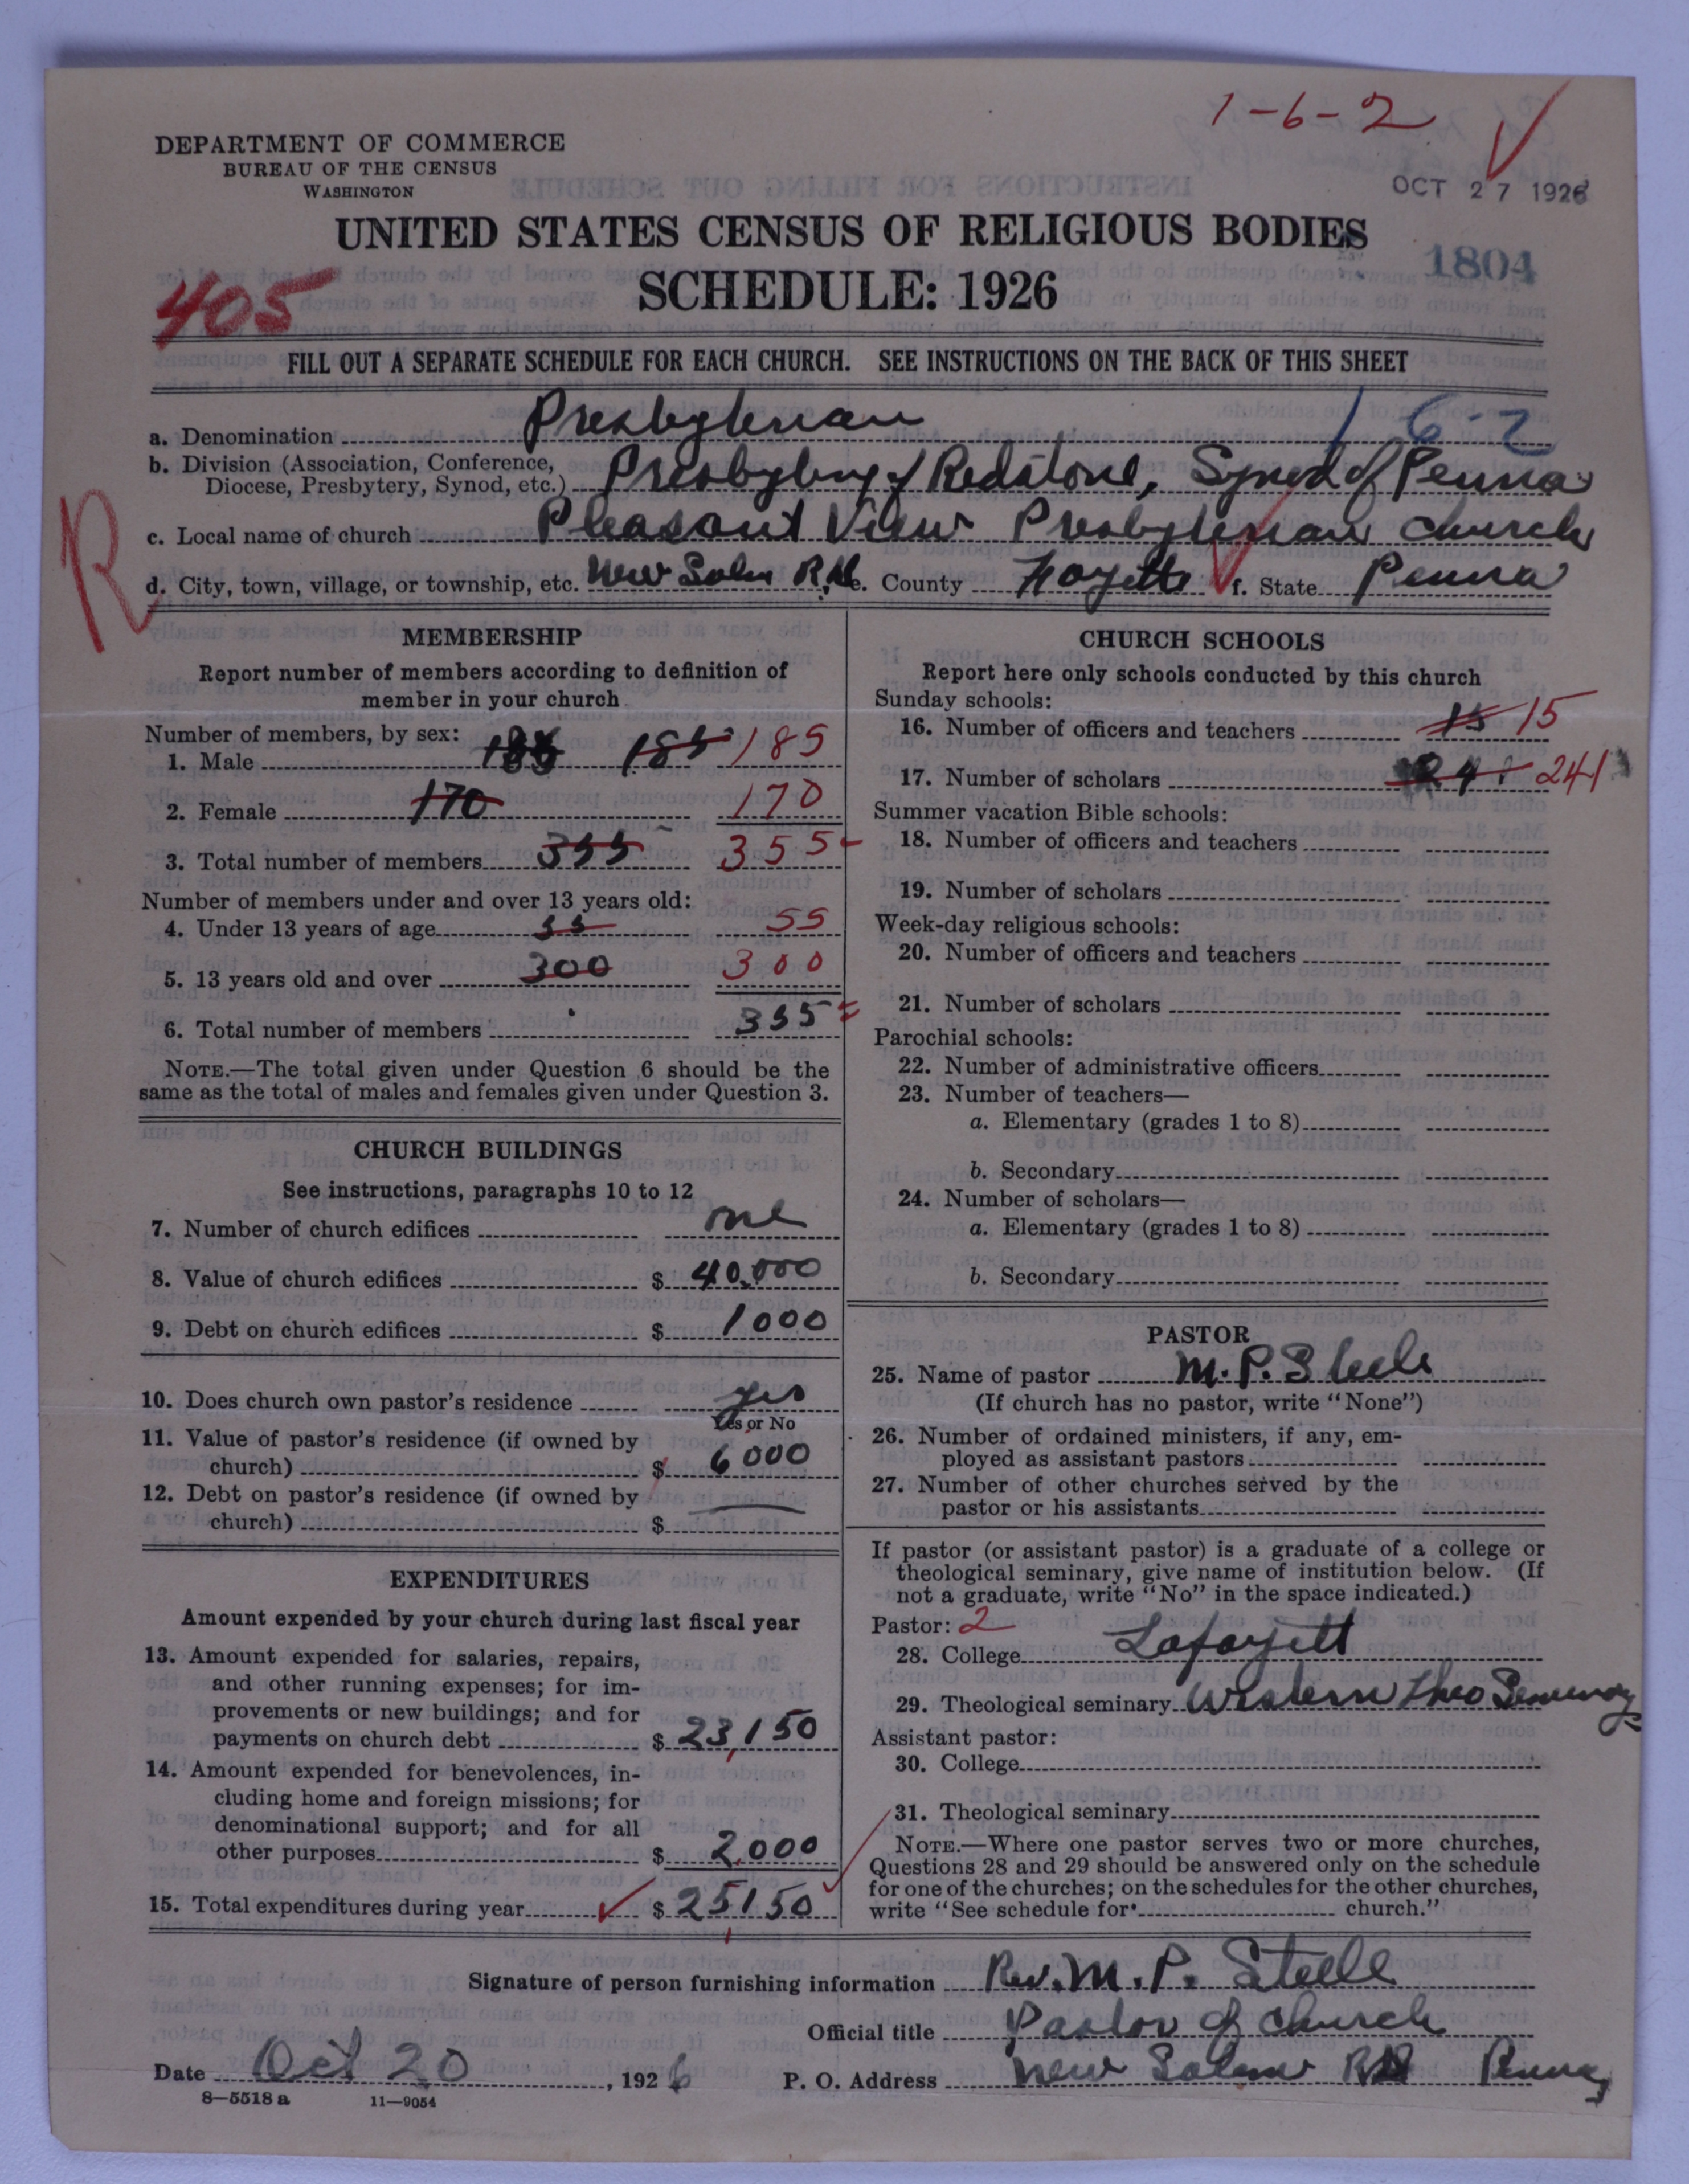 1-6-2
DEPARTMENT OF COMMERCE
BUREAU OF THE CENSUS
WASHINGTON
OCT 27 1926
UNITED STATES CENSUS OF RELIGIOUS BODIES
1804
405
SCHEDULE: 1926
FILL OUT A SEPARATE SCHEDULE FOR EACH CHURCH. SEE INSTRUCTIONS ON THE BACK OF THIS SHEET
a. Denomination Presbyterian 1 6-2
b. Division (Association, Conference,
Diocese, Presbytery, Synod, etc.) Presbytery of Redstone, Synod of Penna
R
c. Local name of church Pleasant View Presbyterian Church
d. City, town, village, or township, etc. New Salem R.D. e. County Fayette f. State Penna
MEMBERSHIP
Report number of members according to definition of
member in your church
Number of members, by sex:
1. Male 185 185 185
2. Female 170 170
3. Total number of members 355 355
Number of members under and over 13 years old:
4. Under 13 years of age 55 55
5. 13 years old and over 300 300
6. Total number of members 355
NOTE.—The total given under Question 6 should be the
same as the total of males and females given under Question 3.
CHURCH BUILDINGS
See instructions, paragraphs 10 to 12
7. Number of church edifices one
8. Value of church edifices $ 40,000
9. Debt on church edifices $ 1000
10. Does church own pastor's residence yes
Yes or No
11. Value of pastor's residence (if owned by
church) $ 6000
12. Debt on pastor's residence (if owned by
church) $ —
EXPENDITURES
Amount expended by your church during last fiscal year
13. Amount expended for salaries, repairs,
and other running expenses; for im-
provements or new buildings; and for
payments on church debt $ 23,150
14. Amount expended for benevolences, in-
cluding home and foreign missions; for
denominational support; and for all
other purposes $ 2,000
15. Total expenditures during year $ 25150
CHURCH SCHOOLS
Report here only schools conducted by this church
Sunday schools:
16. Number of officers and teachers 15 15
17. Number of scholars 241 241
Summer vacation Bible schools:
18. Number of officers and teachers
19. Number of scholars
Week-day religious schools:
20. Number of officers and teachers
21. Number of scholars
Parochial schools:
22. Number of administrative officers
23. Number of teachers—
a. Elementary (grades 1 to 8)
b. Secondary
24. Number of scholars—
a. Elementary (grades 1 to 8)
b. Secondary
PASTOR
25. Name of pastor M. P. Steele
(If church has no pastor, write "None")
26. Number of ordained ministers, if any, em-
ployed as assistant pastors
27. Number of other churches served by the
pastor or his assistants
If pastor (or assistant pastor) is a graduate of a college or
theological seminary, give name of institution below. (If
not a graduate, write "No" in the space indicated.)
Pastor: 2
28. College Lafayett
29. Theological seminary Western Theo Seminary
Assistant pastor:
30. College
31. Theological seminary
NOTE.—Where one pastor serves two or more churches,
Questions 28 and 29 should be answered only on the schedule
for one of the churches; on the schedules for the other churches,
write "See schedule for church."
Signature of person furnishing information Rev. M. P. Steele
Official title Pastor of Church
Date Oct 20, 1926 P. O. Address New Salem RD Penna
8—5518 a 11—9054